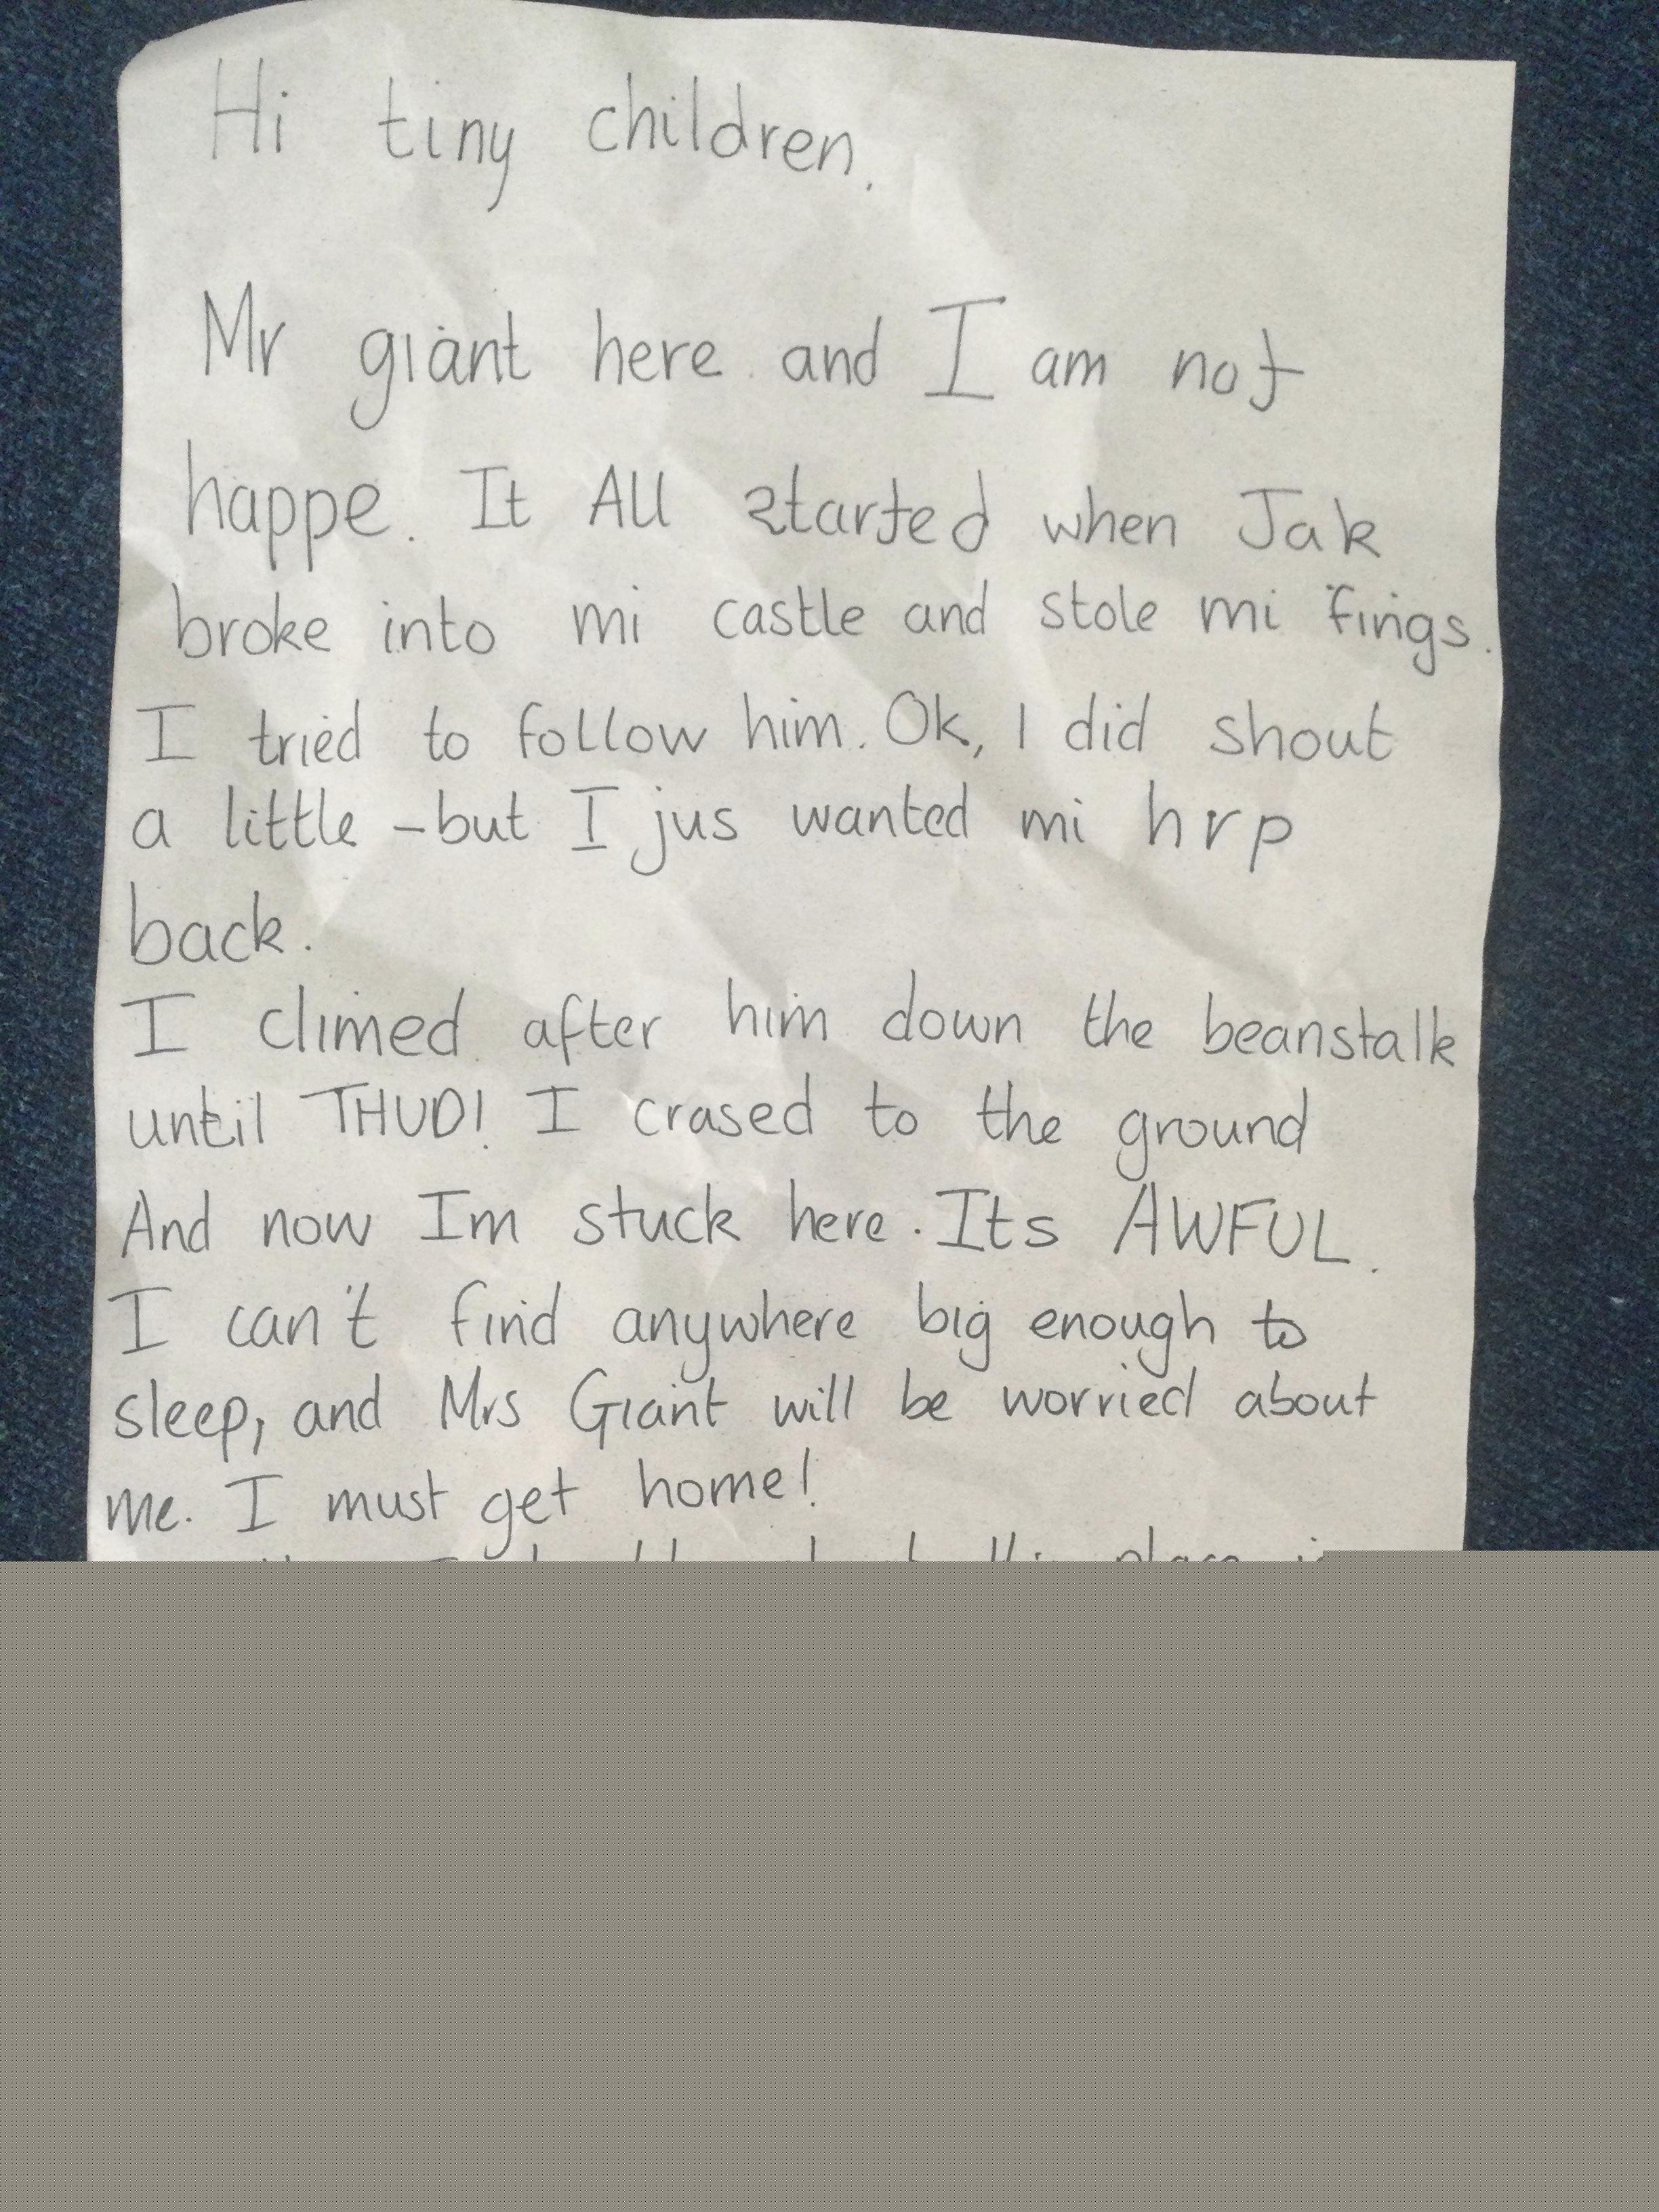 Hi tiny children.
Mr giant here and I am not
happe. It All started when Jak
broke into mi castle and stole mi fings.
I tried to follow him. Ok, I did shout
a little - but I jus wanted mi hrp
back.
I climed after him down the beanstalk
until THUD! I crased to the ground
And now Im stuck here. Its AWFUL.
I can't find anywhere big enough to
sleep, and Mrs Giant will be worried about
me. I must get home!
place